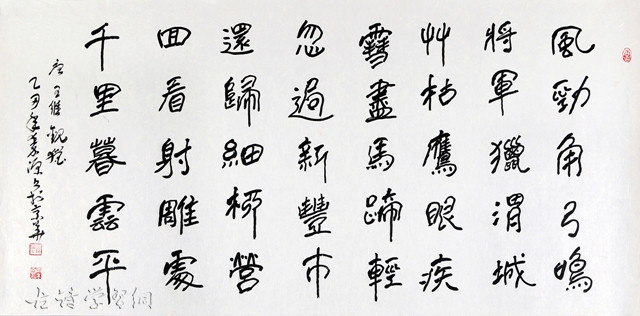 風勁角弓鳴
將軍獵渭城
艸枯鷹眼疾
雪盡馬蹄輕
忽過新豐市
還歸細柳營
回看射雕處
千里暮雲平
唐王維觀獵
乙丑年於京華
古诗学习網